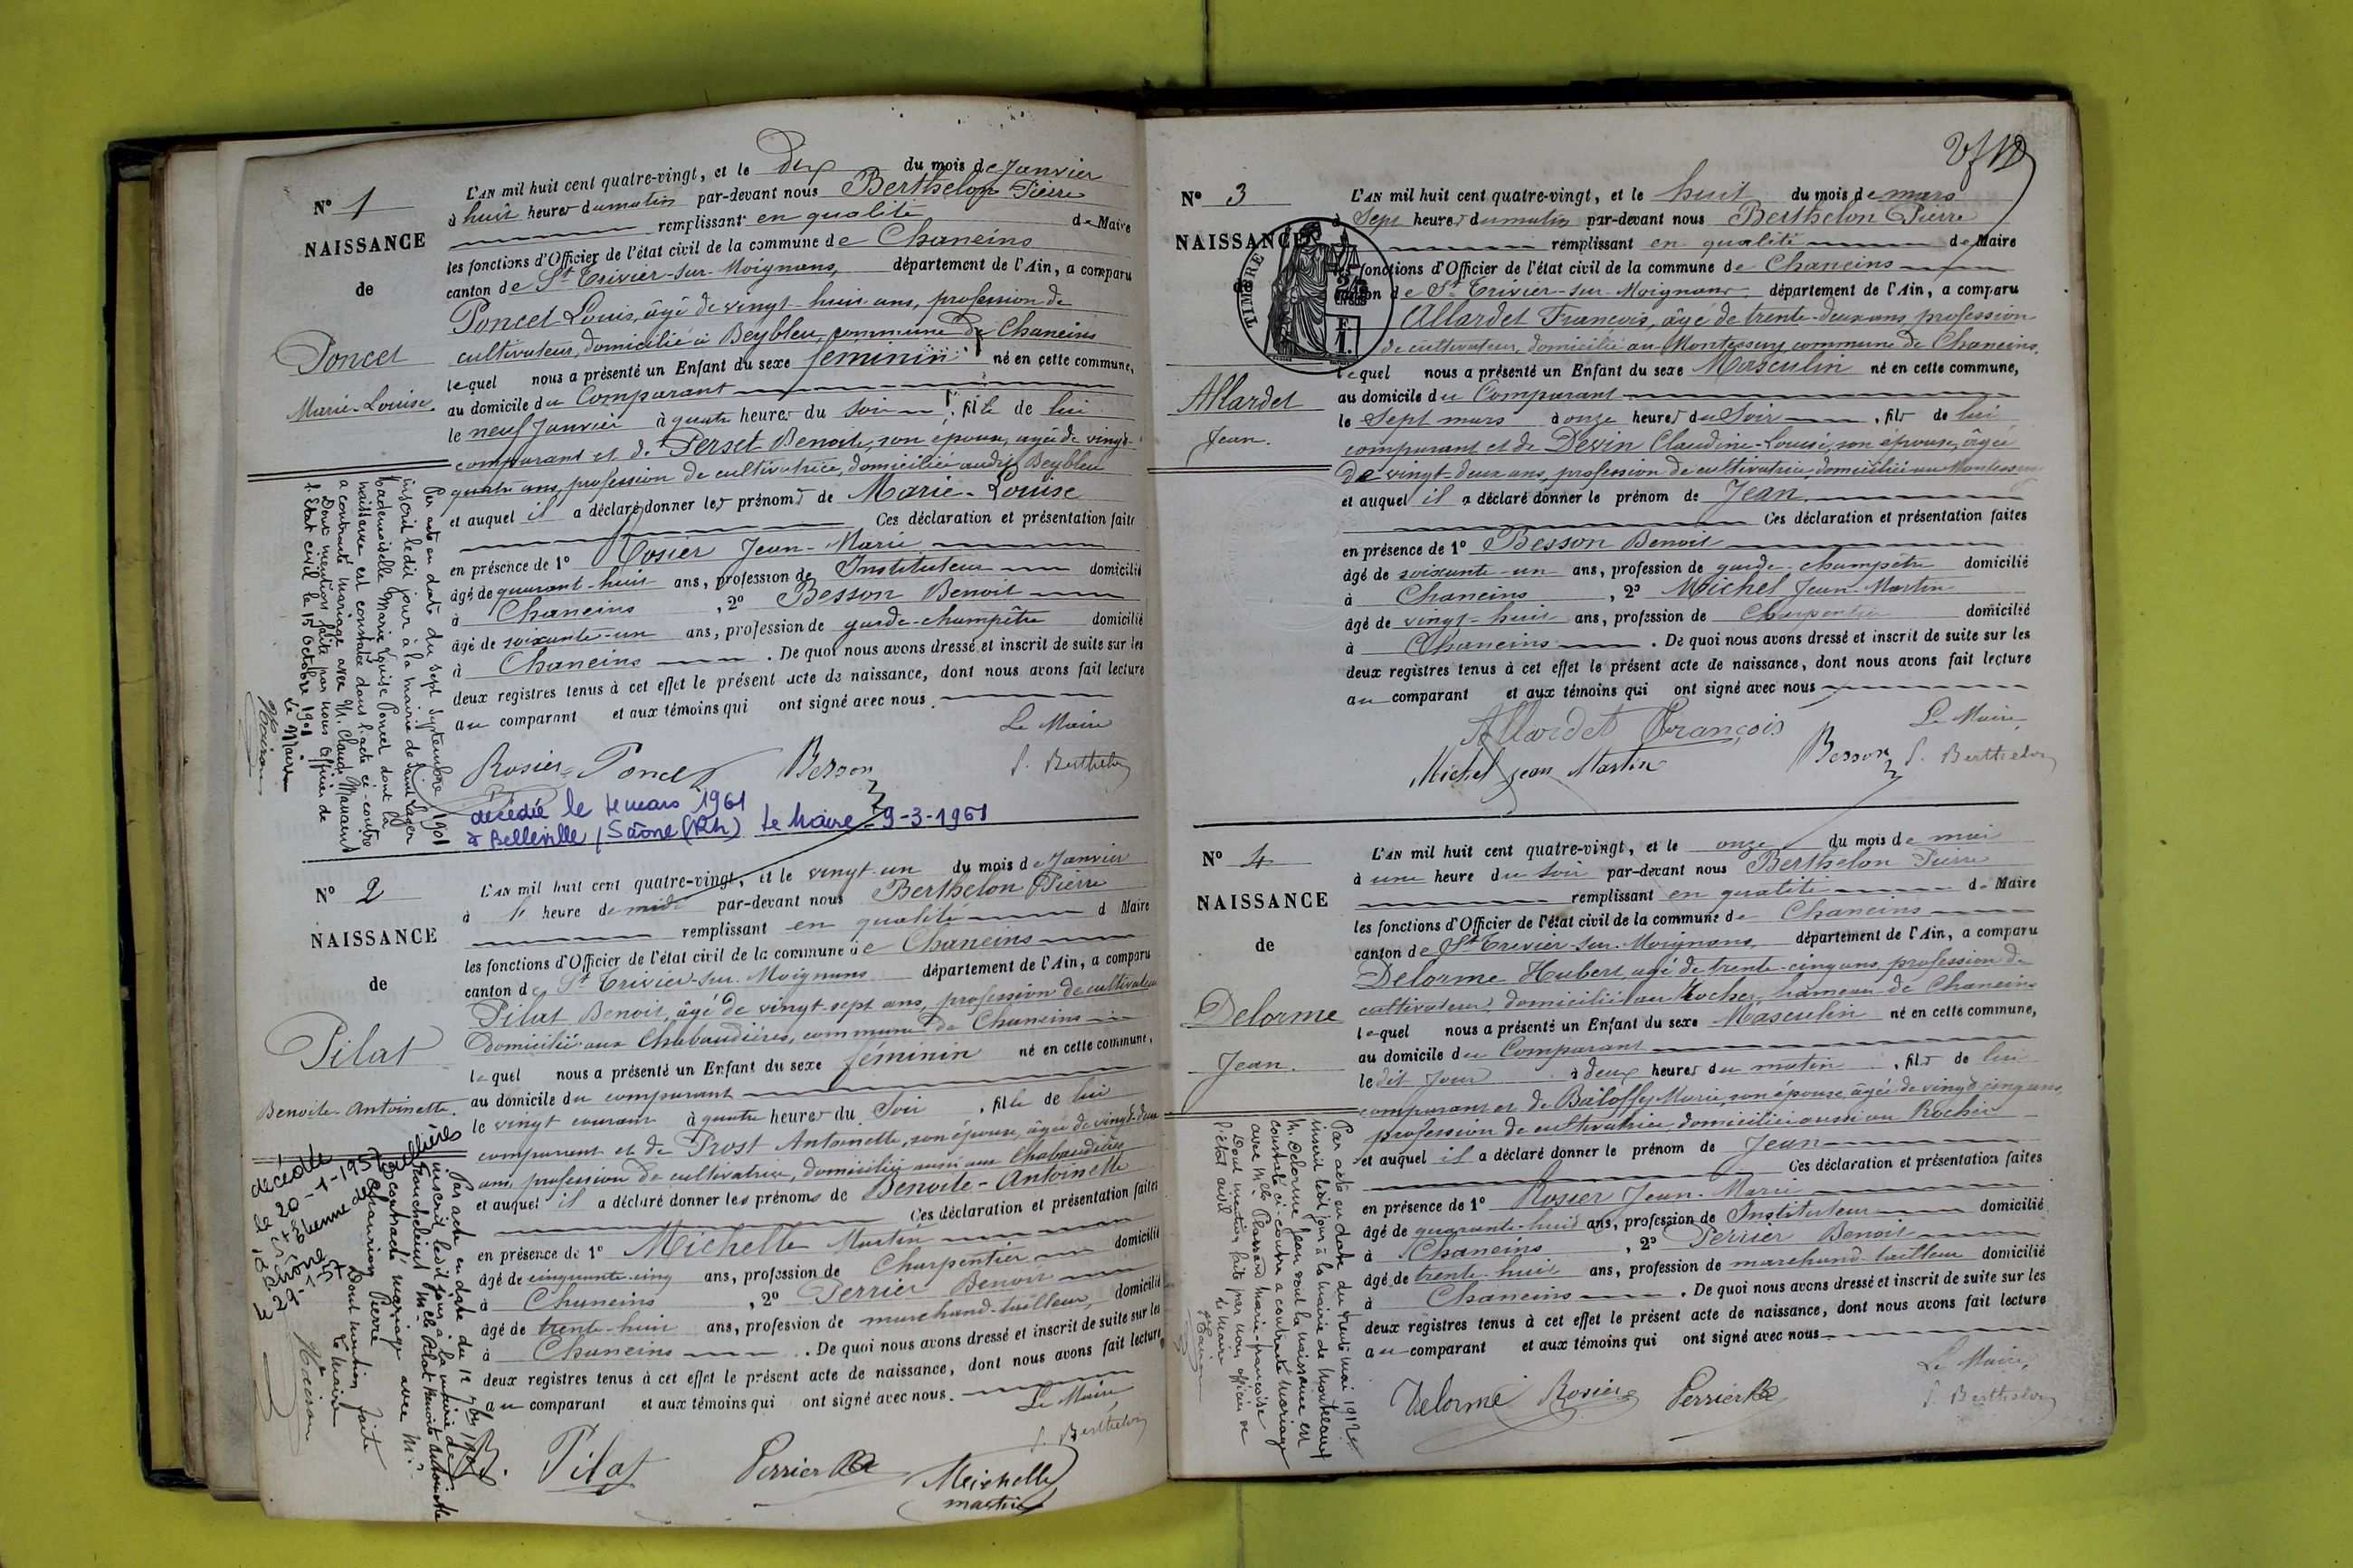 N° 1
NAISSANCE
de
Poncet
Marie-Louise.
L'AN mil huit cent quatre-vingt, et le dix du mois de Janvier
à huit heures du matin par-devant nous Berthelon Pierre
remplissant en qualité de Maire
les fonctions d'Officier de l'état civil de la commune de Chaneins
canton de St Trivier-sur-Moignans, département de l'Ain, a comparu
Poncet Louis, âgé de vingt-huit ans, profession de
cultivateur, domicilié à Beybleu, commune de Chaneins
lequel nous a présenté un Enfant du sexe féminin né en cette commune,
au domicile du Comparant
le neuf Janvier à quatre heures du soir, fille de lui
comparant et de Perset Benoite, son épouse, agée de vingt-
quatre ans, profession de cultivatrice, domiciliée audit Beybleu
et auquel il a déclaré donner les prénoms de Marie-Louise
Ces déclaration et présentation faites
en présence de 1° Rosier Jean-Marie
âgé de quarant-huit ans, profession de Instituteur domicilié
à Chaneins, 2° Besson Benoit
âgé de soixante-un ans, profession de garde-champêtre domicilié
à Chaneins. De quoi nous avons dressé et inscrit de suite sur les
deux registres tenus à cet effet le présent acte de naissance, dont nous avons fait lecture
au comparant et aux témoins qui ont signé avec nous.
Le Maire
Rosier Poncet Besson P. Berthelon
décédée le 4 mars 1961
à Belleville / Saône (Rh) Le Maire 9-3-1961
Par acte en date du sept septembre 1901
inscrit ledit jour à la mairie de Saint Lager
Mademoiselle Marie Louise Poncet dont la
naissance est constatée dans l'acte ci-contre
a contracté mariage avec M. Claude
Dont mention faite par nous Officier de
l'Etat civil le 15 Octobre 1901
Le Maire
N° 2
NAISSANCE
de
Pilat
Benoite-Antoinette.
L'AN mil huit cent quatre-vingt, et le vingt-un du mois de Janvier
à l' heure de midi par-devant nous Berthelon Pierre
remplissant en qualité d Maire
les fonctions d'Officier de l'état civil de la commune de Chaneins
canton de St Trivier-sur-Moignans département de l'Ain, a comparu
Pilat Benoit, âgé de vingt-sept ans, profession de cultivateur
domicilié aux Chabaudières, commune de Chaneins
lequel nous a présenté un Enfant du sexe féminin né en cette commune,
au domicile du comparant
le vingt courant à quatre heures du Soir, fille de lui
comparant et de Prost Antoinette, son épouse, âgée de vingt-deux
ans, profession de cultivatrice, domiciliée aussi aux Chabaudières
et auquel il a déclaré donner les prénoms de Benoite-Antoinette
Ces déclaration et présentation faites
en présence de 1° Michelle Martin
âgé de cinquante-cinq ans, profession de Charpentier domicilié
à Chaneins, 2° Perrier Benoit
âgé de trente-huit ans, profession de marchand-tailleur, domicilié
à Chaneins. De quoi nous avons dressé et inscrit de suite sur les
deux registres tenus à cet effet le présent acte de naissance, dont nous avons fait lecture
au comparant et aux témoins qui ont signé avec nous.
Le Maire
P. Berthelon
Pilat Perrier Michelle
martin
Par acte en date du 12 7bre
inscrit ledit jour à la mairie de
Francheleins Melle Pilat Benoite Antoinette
a contracté mariage avec M.
Pierre
Dont mention faite
Le Maire
décédée
20-1-1957
N° 3
NAISSANCE
TIMBRE
Allardet
Jean.
L'AN mil huit cent quatre-vingt, et le huit du mois de mars
à Sept heures du matin par-devant nous Berthelon Pierre
remplissant en qualité de Maire
les fonctions d'Officier de l'état civil de la commune de Chaneins
canton de St Trivier-sur-Moignans, département de l'Ain, a comparu
Allardet François, âgé de trente-deux ans, profession
de cultivateur, domicilié au Montessuy commune de Chaneins.
lequel nous a présenté un Enfant du sexe Masculin né en cette commune,
au domicile du Comparant
le Sept mars à onze heures du Soir, fils de lui
comparant et de Devin Claudine-Louise, son épouse, âgée
de vingt-deux ans, profession de cultivatrice, domiciliée au Montessuy
et auquel il a déclaré donner le prénom de Jean.
Ces déclaration et présentation faites
en présence de 1° Besson Benoit
âgé de soixante-un ans, profession de garde-champêtre domicilié
à Chaneins, 2° Michel Jean-Martin
âgé de vingt-huit ans, profession de Charpentier domicilié
à Chaneins. De quoi nous avons dressé et inscrit de suite sur les
deux registres tenus à cet effet le présent acte de naissance, dont nous avons fait lecture
au comparant et aux témoins qui ont signé avec nous
Le Maire,
Allardet François
Michel jean Martin Besson P. Berthelon
N° 4
NAISSANCE
de
Delorme
Jean.
L'AN mil huit cent quatre-vingt, et le onze du mois de mai
à une heure du soir par-devant nous Berthelon Pierre
remplissant en qualité de Maire
les fonctions d'Officier de l'état civil de la commune de Chaneins
canton de St Trivier-sur-Moignans, département de l'Ain, a comparu
Delorme Hubert, agé de trente-cinq ans, profession de
cultivateur, domicilié au Rocher, hameau de Chaneins
lequel nous a présenté un Enfant du sexe Masculin né en cette commune,
au domicile du Comparant
le dit Jour à deux heures du matin, fils de lui
comparant et de Baloffy Marie, son épouse, âgée de vingt-cinq ans,
profession de cultivatrice domiciliée aussi au Rocher
et auquel il a déclaré donner le prénom de Jean
Ces déclaration et présentation faites
en présence de 1° Rosier Jean-Marie
âgé de quarante-huit ans, profession de Instituteur domicilié
à Chaneins, 2° Perrier Benoit
âgé de trente-huit ans, profession de marchand-tailleur domicilié
à Chaneins. De quoi nous avons dressé et inscrit de suite sur les
deux registres tenus à cet effet le présent acte de naissance, dont nous avons fait lecture
au comparant et aux témoins qui ont signé avec nous
Le Maire,
Delorme Rosier Perrier P. Berthelon
Par acte en date du trente mai 1912
inscrit ledit jour à la mairie de Montceaux
M. Delorme Jean dont la naissance est
constatée ci-contre a contracté mariage
avec Melle Plassard Marie-françoise
Dont mention faite par nous officier de
l'état civil Le Maire